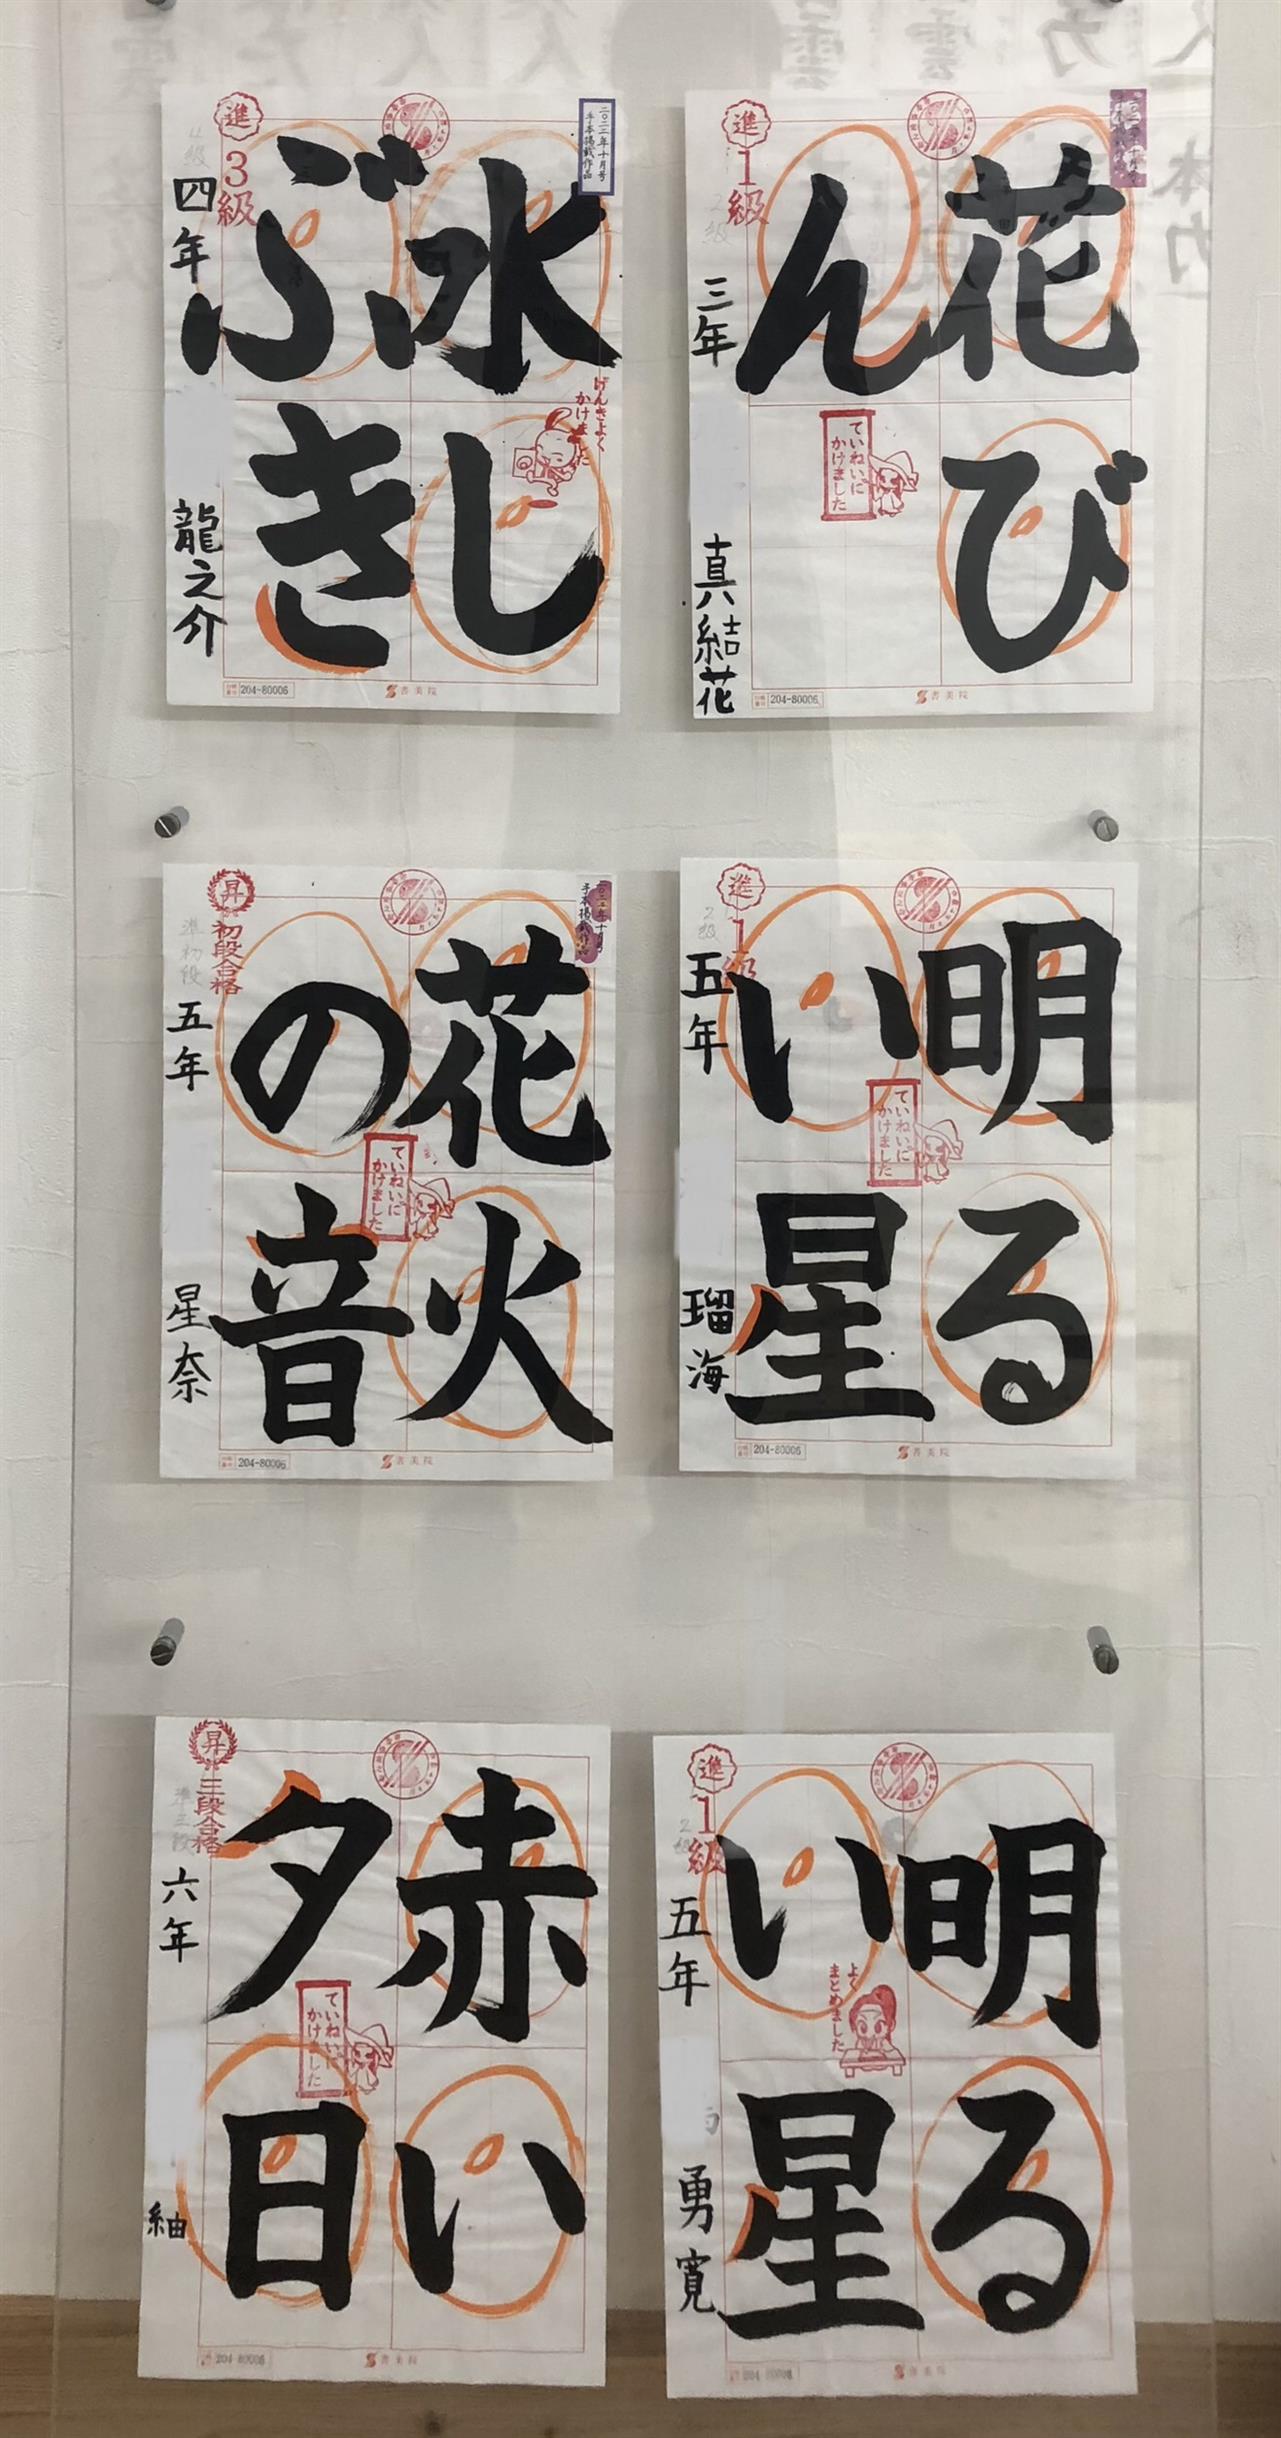 花び
ん
進
1級
三年
真結花
ていねいに
かけました
204-80006
書美院
二〇二二年十月号
手本掲載作品
水し
ぶき
進
3級
四年
龍之介
げんきよく
かけました
204-80006
書美院
明る
い星
進
1級
2級
五年
瑠海
ていねいに
かけました
204-80006
書美院
手本掲載作品
花火
の音
昇
初段合格
準初段
五年
星奈
ていねいに
かけました
204-80006
書美院
明る
い星
進
1級
五年
勇寛
よく
まとめました
204-80006
書美院
赤い
夕日
昇
三段合格
準三段
六年
紬
ていねいに
かけました
204-80006
書美院